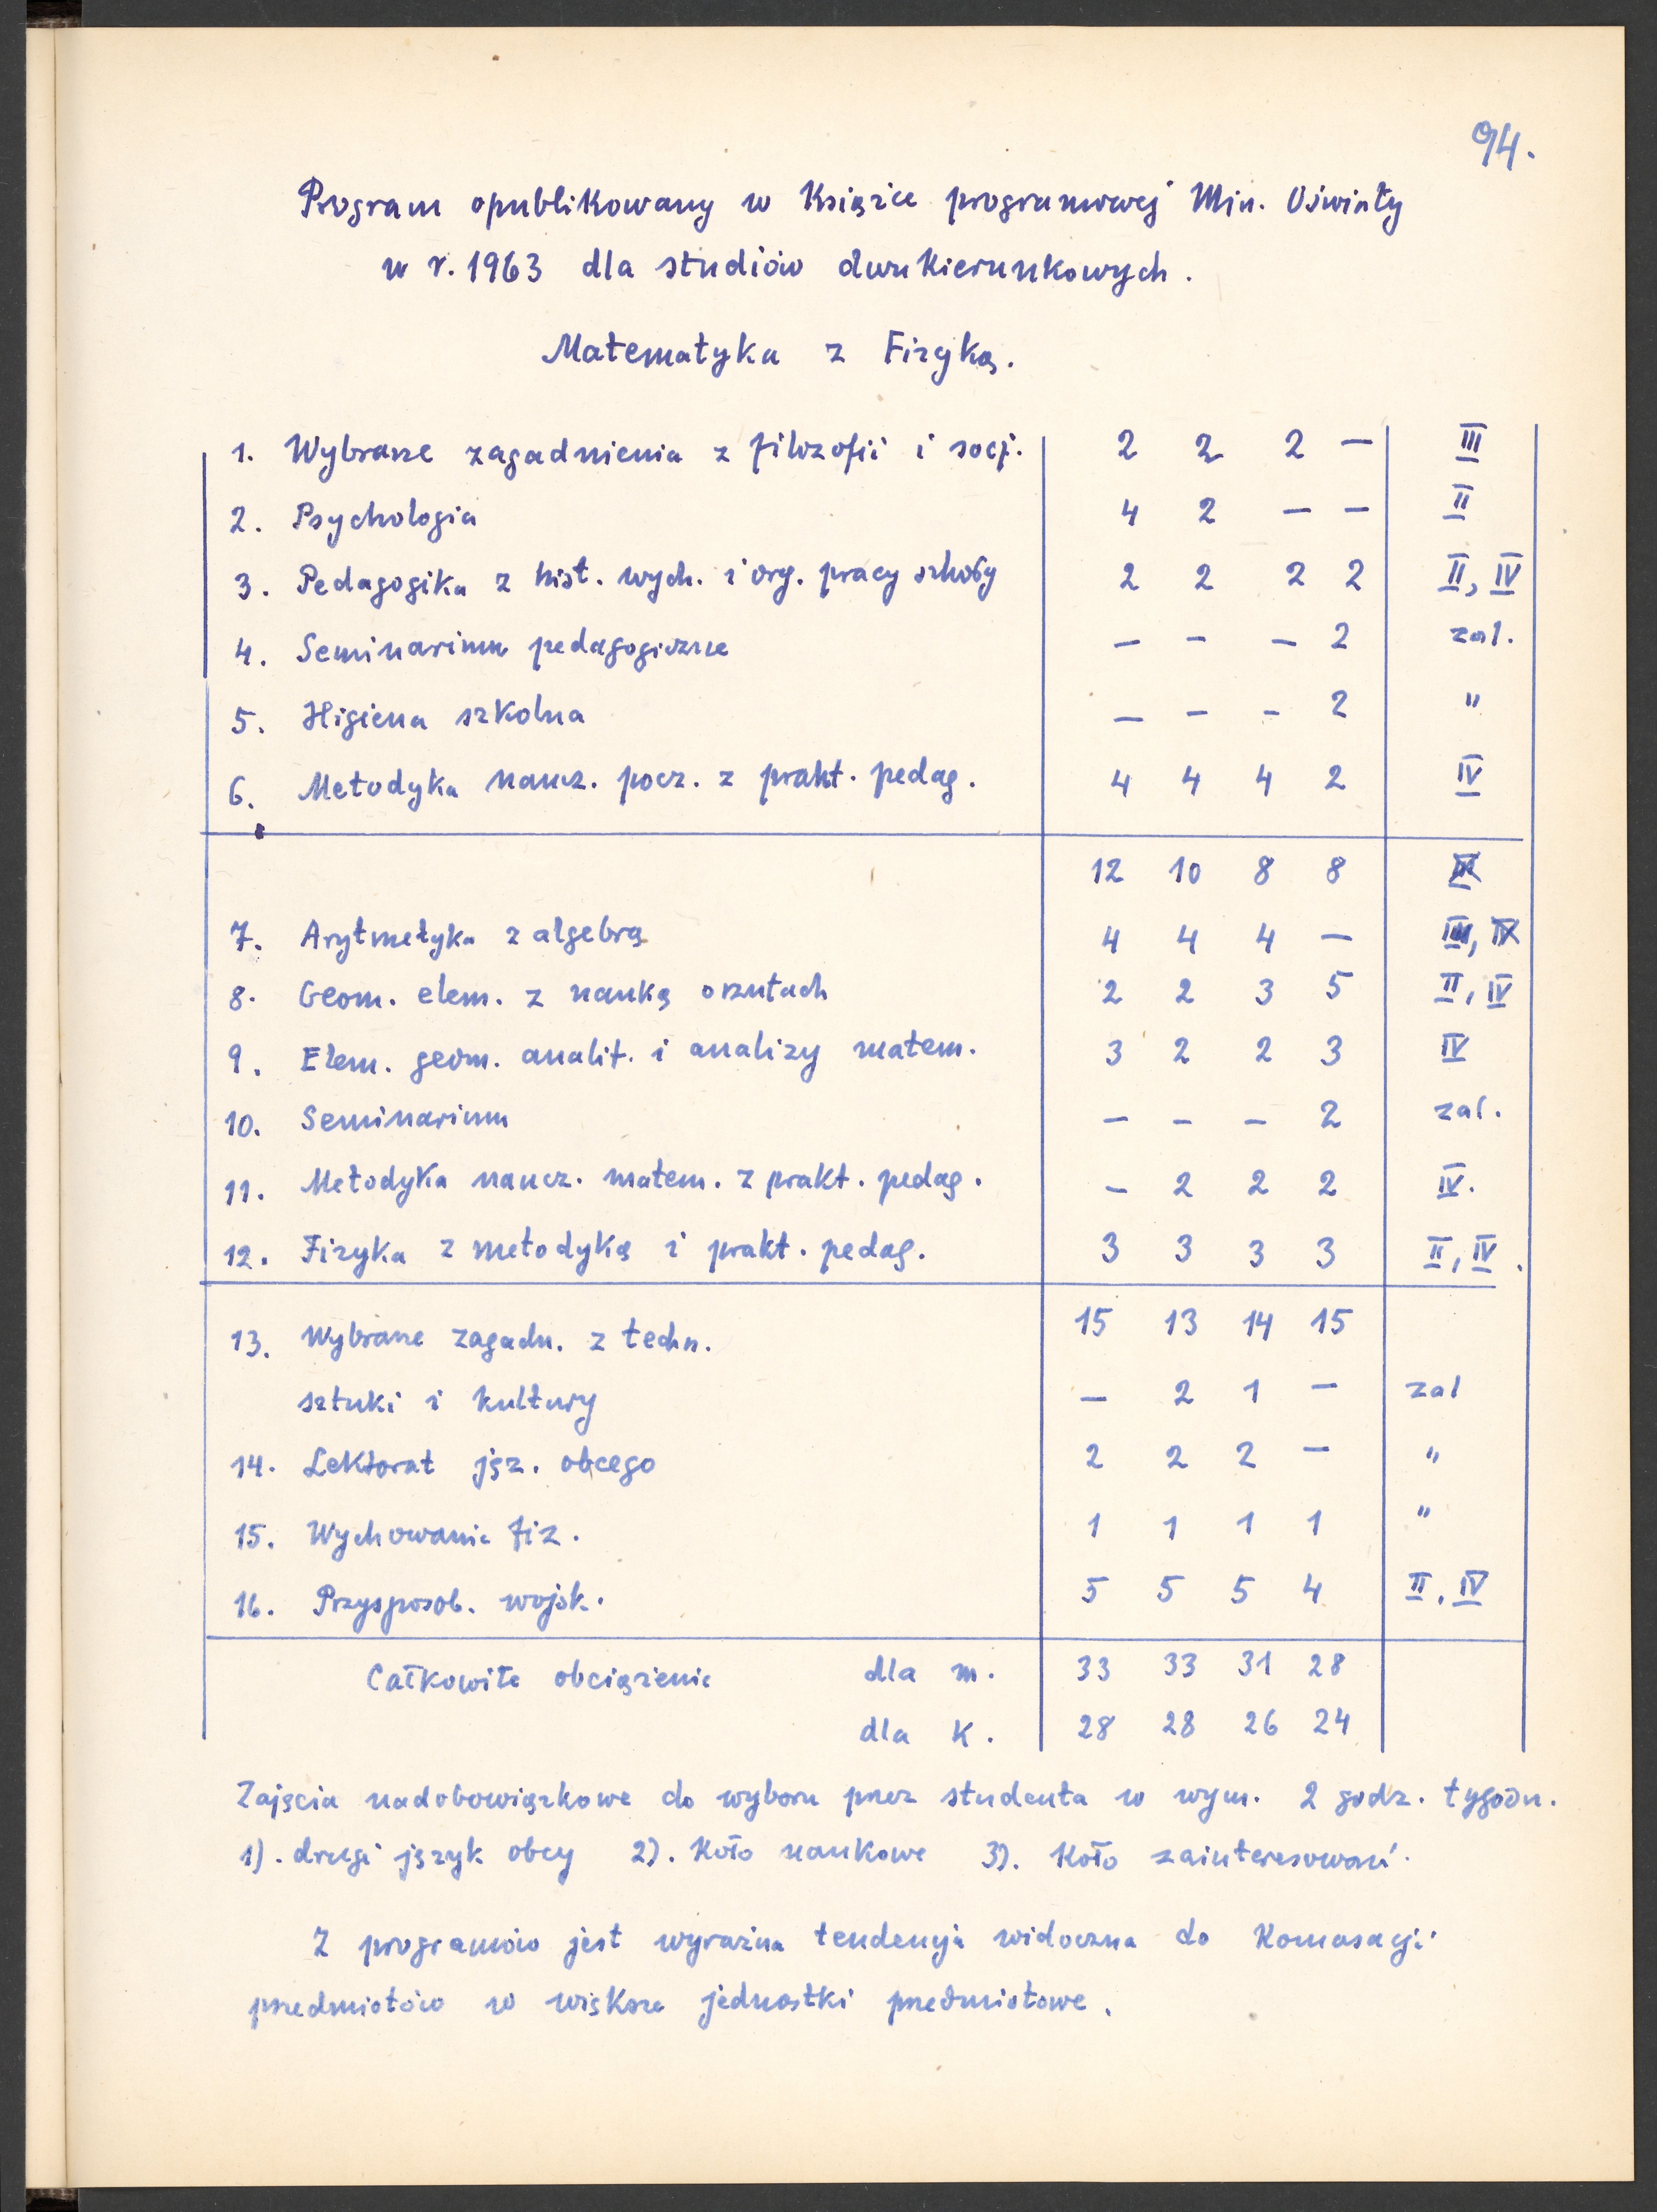 94.
Program opublikowany w Książce programowej Min. Oświaty
w r. 1963 dla studiów dwukierunkowych.
Matematyka z Fizyką.
1. Wybrane zagadnienia z filozofii i socj. 2 2 2 — III
2. Psychologia 4 2 — — II
3. Pedagogika z hist. wych. i org. pracy szkoły 2 2 2 2 II, IV
4. Seminarium pedagogiczne — — — 2 zal.
5. Higiena szkolna — — — 2 "
6. Metodyka naucz. pocz. z prakt. pedag. 4 4 4 2 IV
12 10 8 8
7. Arytmetyka z algebrą 4 4 4 — III,
8. Geom. elem. z nauką o rzutach 2 2 3 5 II, IV
9. Elem. geom. analit. i analizy matem. 3 2 2 3 IV
10. Seminarium — — — 2 zal.
11. Metodyka naucz. matem. z prakt. pedag. — 2 2 2 IV.
12. Fizyka z metodyką i prakt. pedag. 3 3 3 3 II, IV.
15 13 14 15
13. Wybrane zagadn. z techn.
sztuki i kultury — 2 1 — zal
14. Lektorat jęz. obcego 2 2 2 — "
15. Wychowanie fiz. 1 1 1 1 "
16. Przysposob. wojsk. 5 5 5 4 II, IV
Całkowite obciążenie dla m. 33 33 31 28
dla k. 28 28 26 24
Zajęcia nadobowiązkowe do wyboru przez studenta w wym. 2 godz. tygodn.
1). drugi język obcy 2). Koło naukowe 3). Koło zainteresowań.
Z programów jest wyraźna tendencja widoczna do Komasacji
przedmiotów w większe jednostki przedmiotowe.